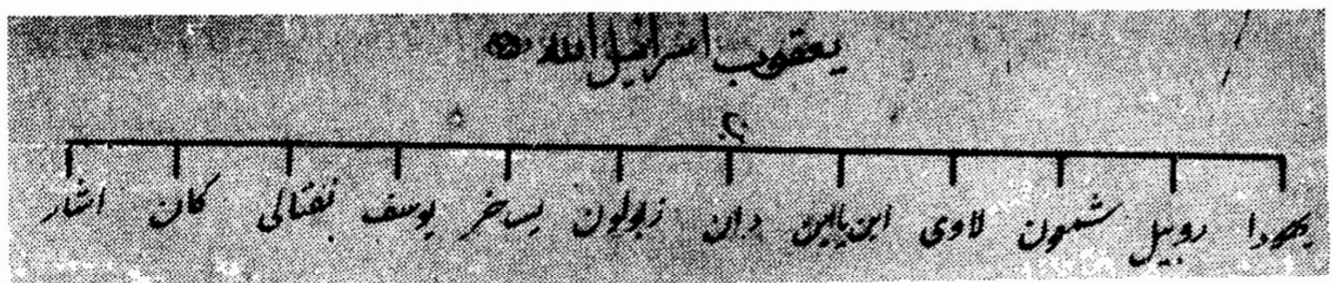 يعقوب اسرائيل الله
يهودا روبيل شمعون لاوى ابن يامين دان زبولون يساخر يوسف نفتالى كان اشار